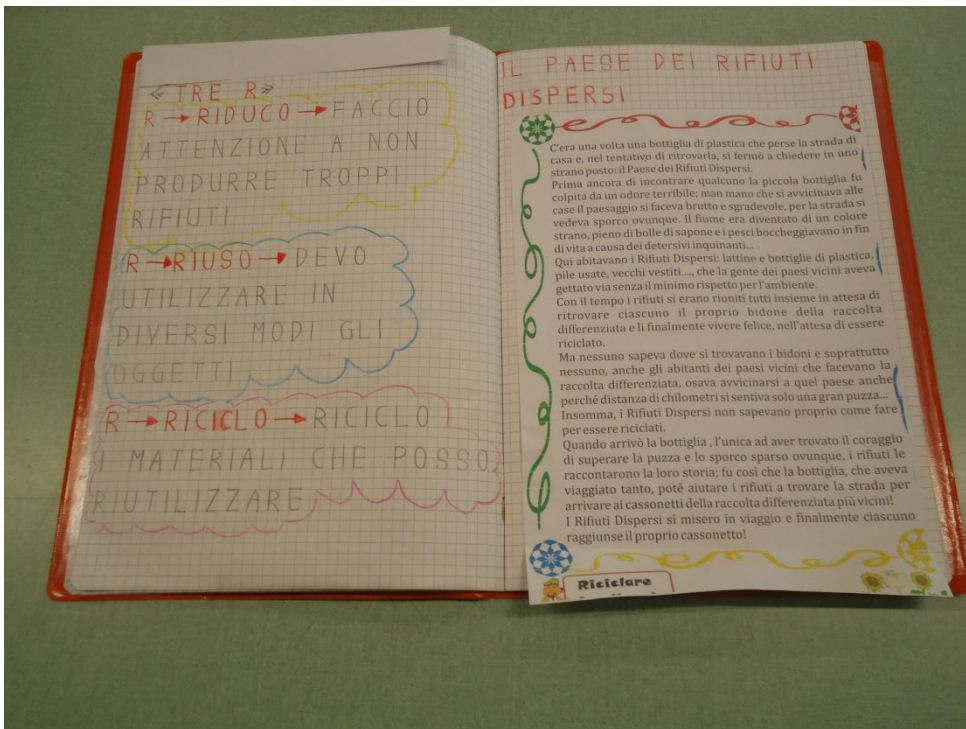 «TRE R»
R → RIDUCO → FACCIO
ATTENZIONE A NON
PRODURRE TROPPI
RIFIUTI
R → RIUSO → DEVO
UTILIZZARE IN
DIVERSI MODI GLI
OGGETTI
R → RICICLO → RICICLO
I MATERIALI CHE POSSO
RIUTILIZZARE
IL PAESE DEI RIFIUTI
DISPERSI
C'era una volta una bottiglia di plastica che perse la strada di
casa e, nel tentativo di ritrovarla, si fermò a chiedere in uno
strano posto: il Paese dei Rifiuti Dispersi.
Prima ancora di incontrare qualcuno la piccola bottiglia fu
colpita da un odore terribile; man mano che si avvicinava alle
case il paesaggio si faceva brutto e sgradevole, per la strada si
vedeva sporco ovunque. Il fiume era diventato di un colore
strano, pieno di bolle di sapone e i pesci boccheggiavano in fin
di vita a causa dei detersivi inquinanti...
Qui abitavano i Rifiuti Dispersi: lattine e bottiglie di plastica,
pile usate, vecchi vestiti...., che la gente dei paesi vicini aveva
gettato via senza il minimo rispetto per l'ambiente.
Con il tempo i rifiuti si erano riuniti tutti insieme in attesa di
ritrovare ciascuno il proprio bidone della raccolta
differenziata e lì finalmente vivere felice, nell'attesa di essere
riciclato.
Ma nessuno sapeva dove si trovavano i bidoni e soprattutto
nessuno, anche gli abitanti dei paesi vicini che facevano la
raccolta differenziata, osava avvicinarsi a quel paese anche
perché distanza di chilometri si sentiva solo una gran puzza...
Insomma, i Rifiuti Dispersi non sapevano proprio come fare
per essere riciclati.
Quando arrivò la bottiglia , l'unica ad aver trovato il coraggio
di superare la puzza e lo sporco sparso ovunque, i rifiuti le
raccontarono la loro storia; fu così che la bottiglia, che aveva
viaggiato tanto, poté aiutare i rifiuti a trovare la strada per
arrivare ai cassonetti della raccolta differenziata più vicini!
I Rifiuti Dispersi si misero in viaggio e finalmente ciascuno
raggiunse il proprio cassonetto!
Riciclare